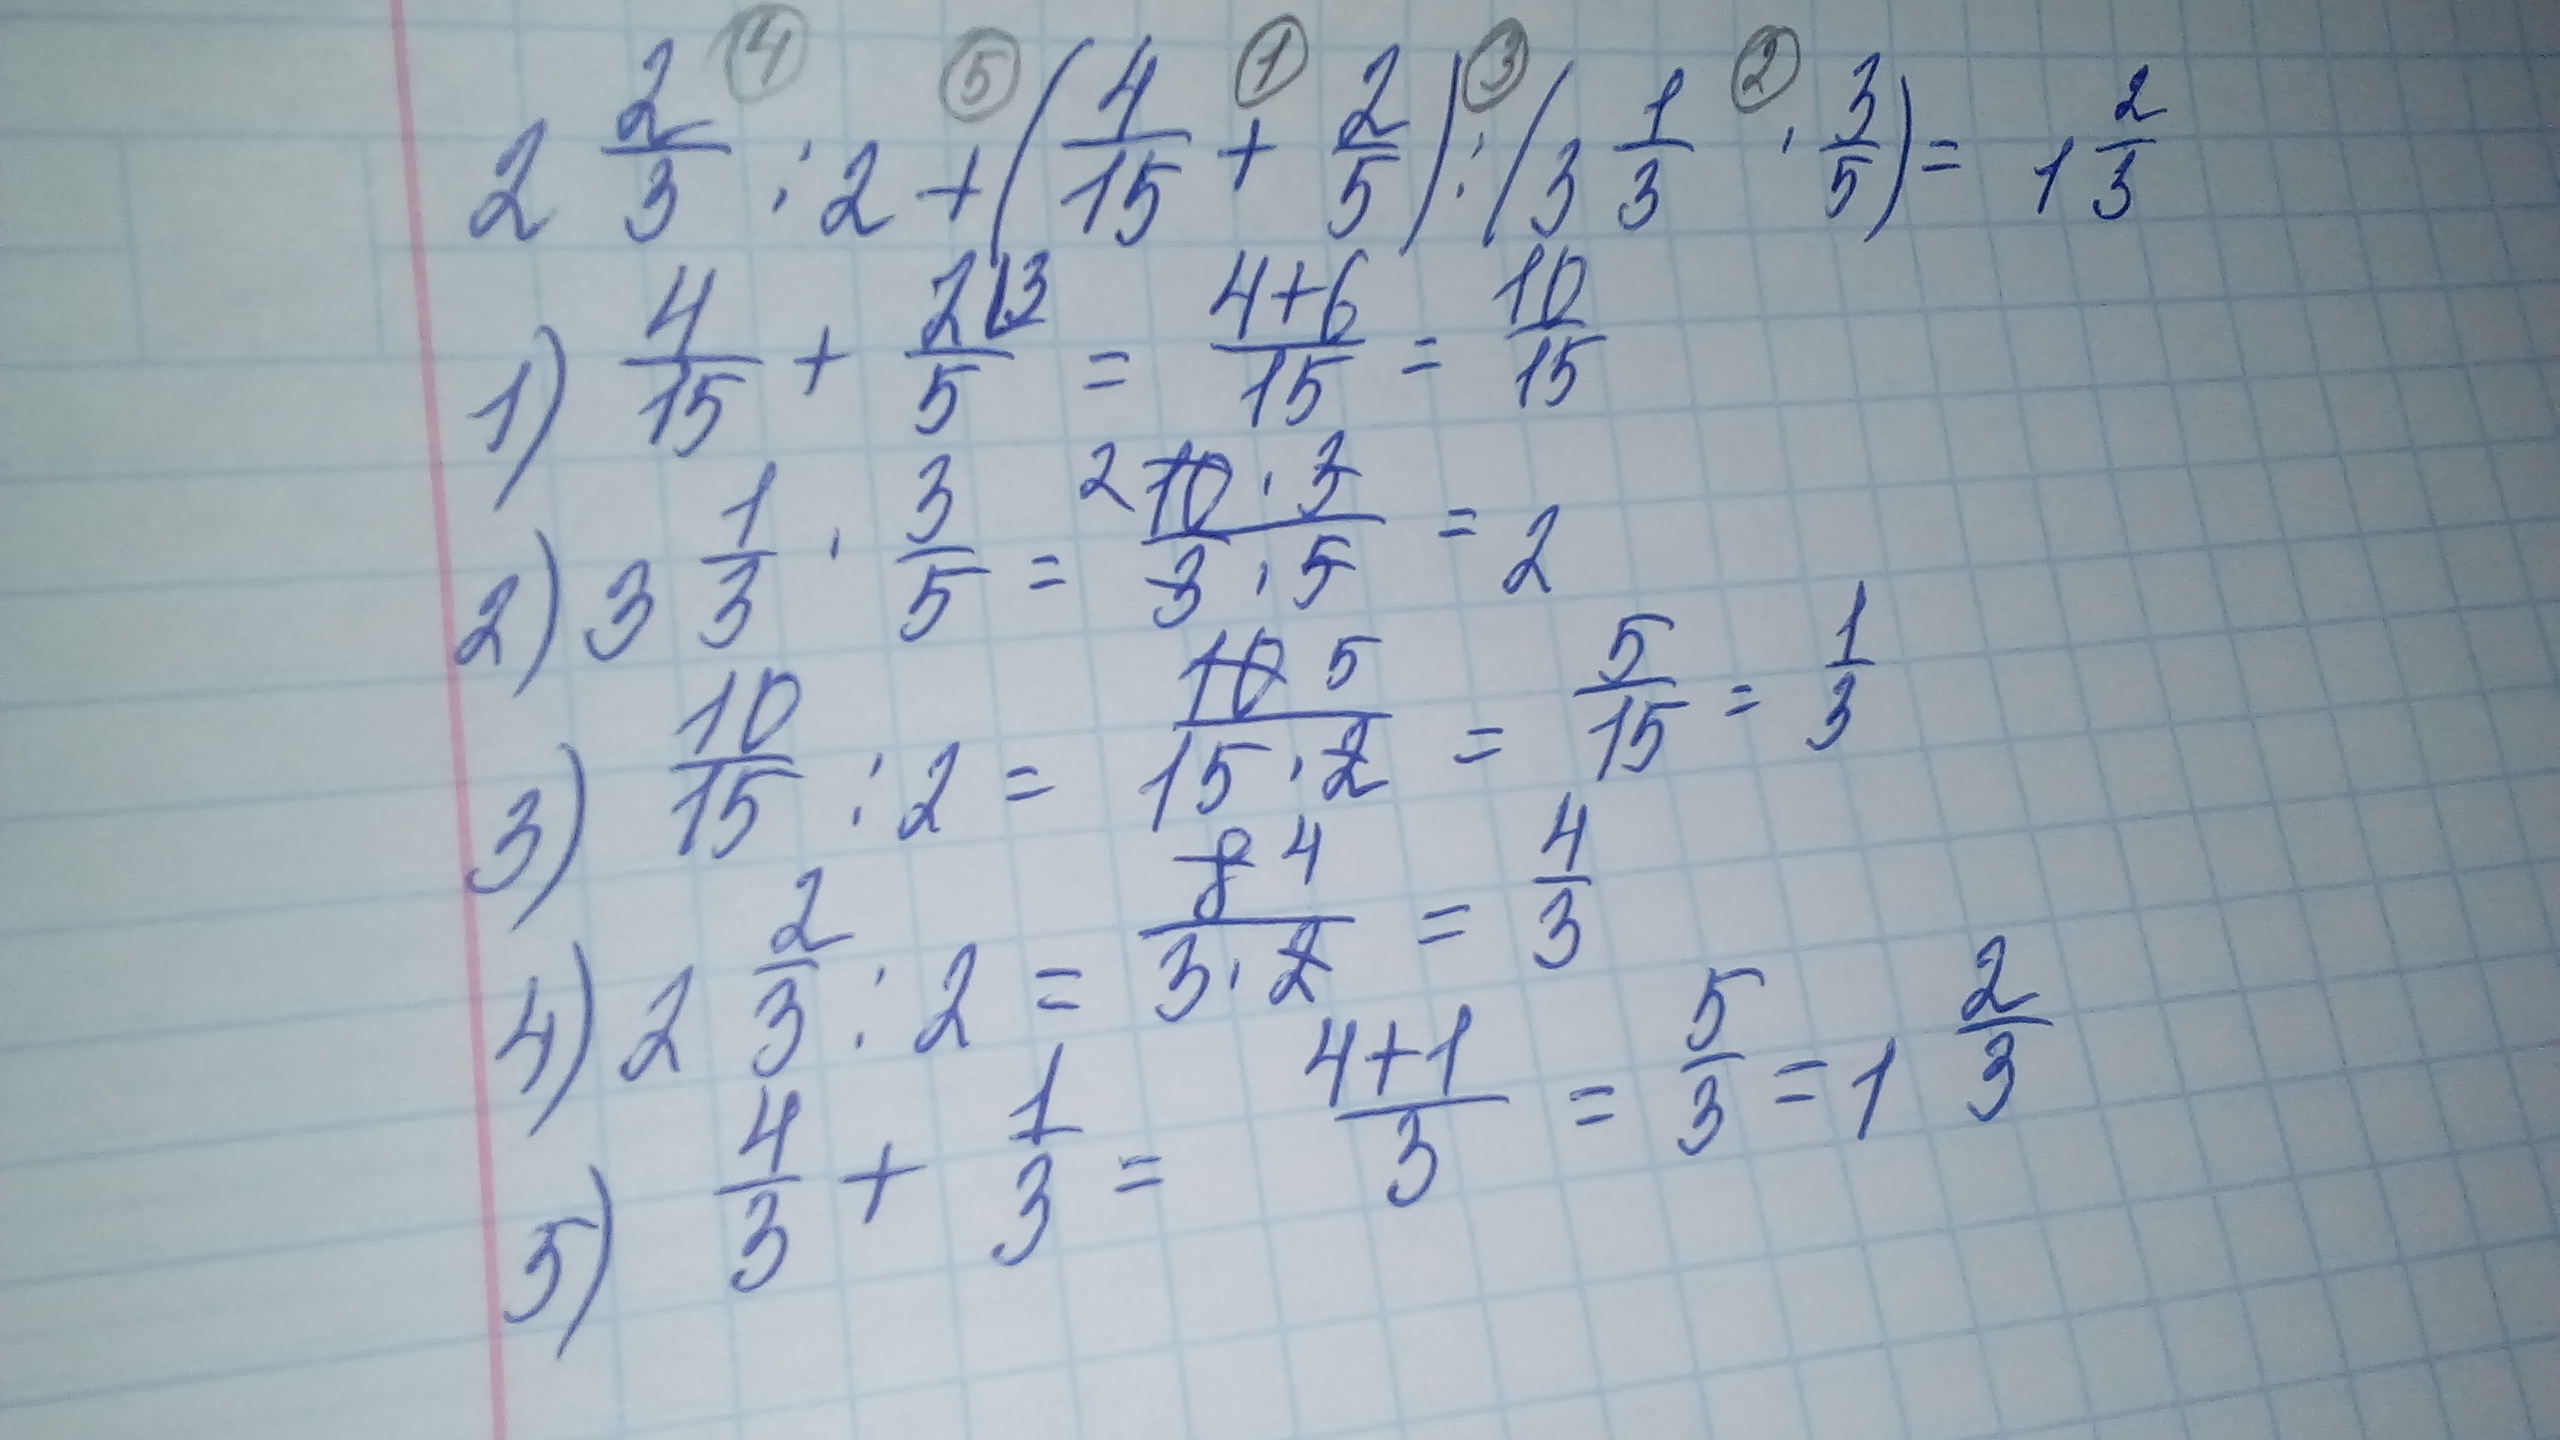 ④ ⑤ ① ③ ②
2 2/3 : 2 + (4/15 + 2/5) : (3 1/3 · 3/5) = 1 2/3
1) 4/15 + 2⌊3/5 = 4+6/15 = 10/15
2) 3 1/3 · 3/5 = 2 10·3/3·5 = 2
3) 10/15 : 2 = 10 5/15·2 = 5/15 = 1/3
4) 2 2/3 : 2 = 8 4/3·2 = 4/3
5) 4/3 + 1/3 = 4+1/3 = 5/3 = 1 2/3